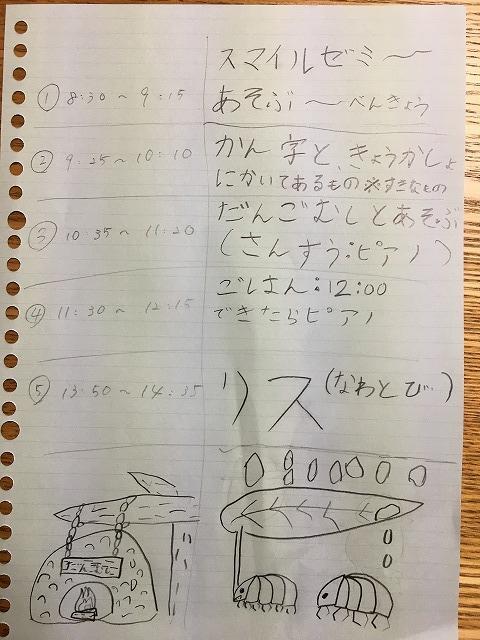 スマイルゼミ〜
① 8:30 〜 9:15 あそぶ〜べんきょう
② 9:25 〜 10:10 かん字と、きょうかしょ
にかいてあるもの ※すきなもの
だんごむしとあそぶ
③ 10:35 〜 11:20 (さんすう:ピアノ)
ごはん:12:00
④ 11:30 〜 12:15 できたらピアノ
⑤ 13:50 〜 14:35 リス(なわとび)